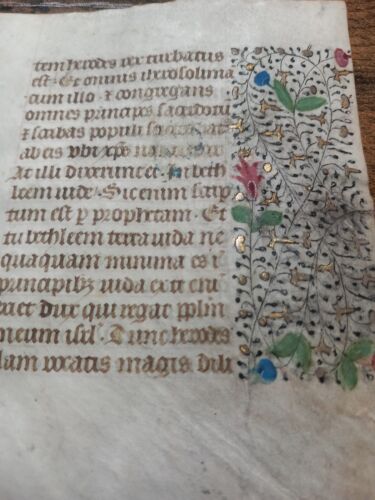 tem herodes rex turbatus
est · Et omnis iherosolima
cum illo · et congregans
omnes principes sacerdotu
et scribas populi
ab eis ubi xp̄s
At illi dixerunt ei · In beth
leem iude · Sic enim scrip
tum est ꝑ prophetam · Et
tu bethleem terra iuda ne
quaquam minima es ī
principibꝫ iuda ex te eni
exiet dux qui regat pplm̄
meum isrl̄ · Tunc herodes
clam vocatis magis dili